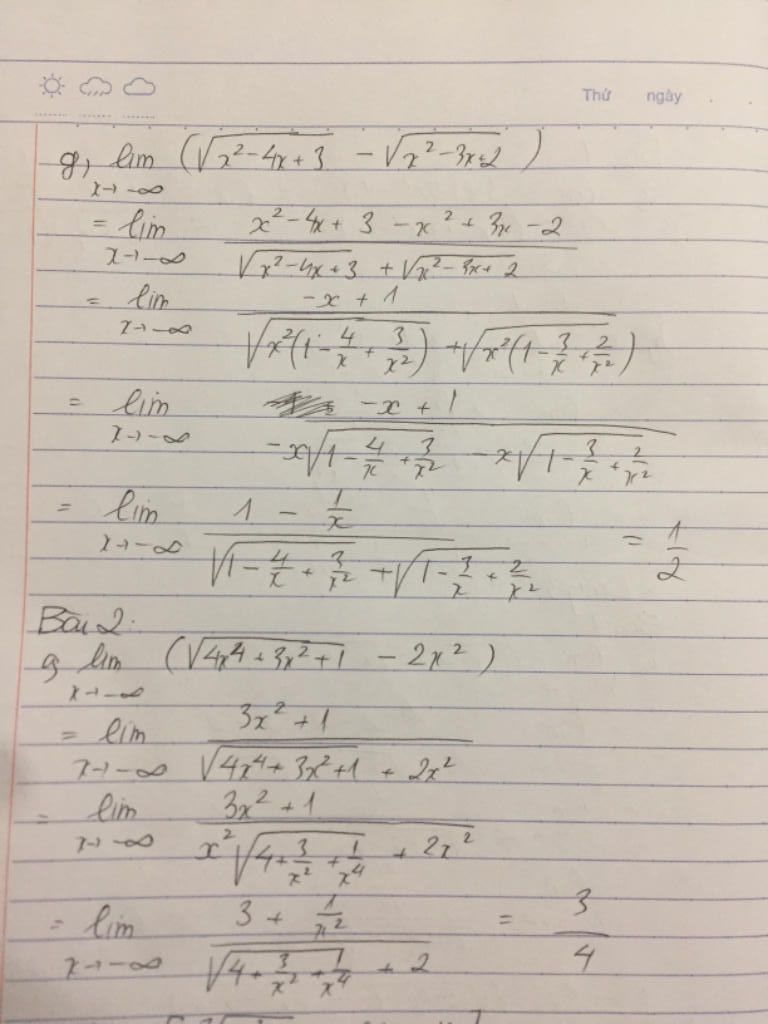 Thứ ngày . .
g, lim (√(x² - 4x + 3) - √(x² - 3x + 2))
x→ -∞
= lim (x² - 4x + 3 - x² + 3x - 2) / (√(x² - 4x + 3) + √(x² - 3x + 2))
x→ -∞
= lim (-x + 1) / (√(x²(1 - 4/x + 3/x²)) + √(x²(1 - 3/x + 2/x²)))
x→ -∞
= lim (-x + 1) / (-x√(1 - 4/x + 3/x²) - x√(1 - 3/x + 2/x²))
x→ -∞
= lim (1 - 1/x) / (√(1 - 4/x + 3/x²) + √(1 - 3/x + 2/x²)) = 1/2
x→ -∞
Bài 2:
lim (√(4x⁴ + 3x² + 1) - 2x²)
x→ -∞
= lim (3x² + 1) / (√(4x⁴ + 3x² + 1) + 2x²)
x→ -∞
= lim (3x² + 1) / (x²√(4 + 3/x² + 1/x⁴) + 2x²)
x→ -∞
= lim (3 + 1/x²) / (√(4 + 3/x² + 1/x⁴) + 2) = 3/4
x→ -∞